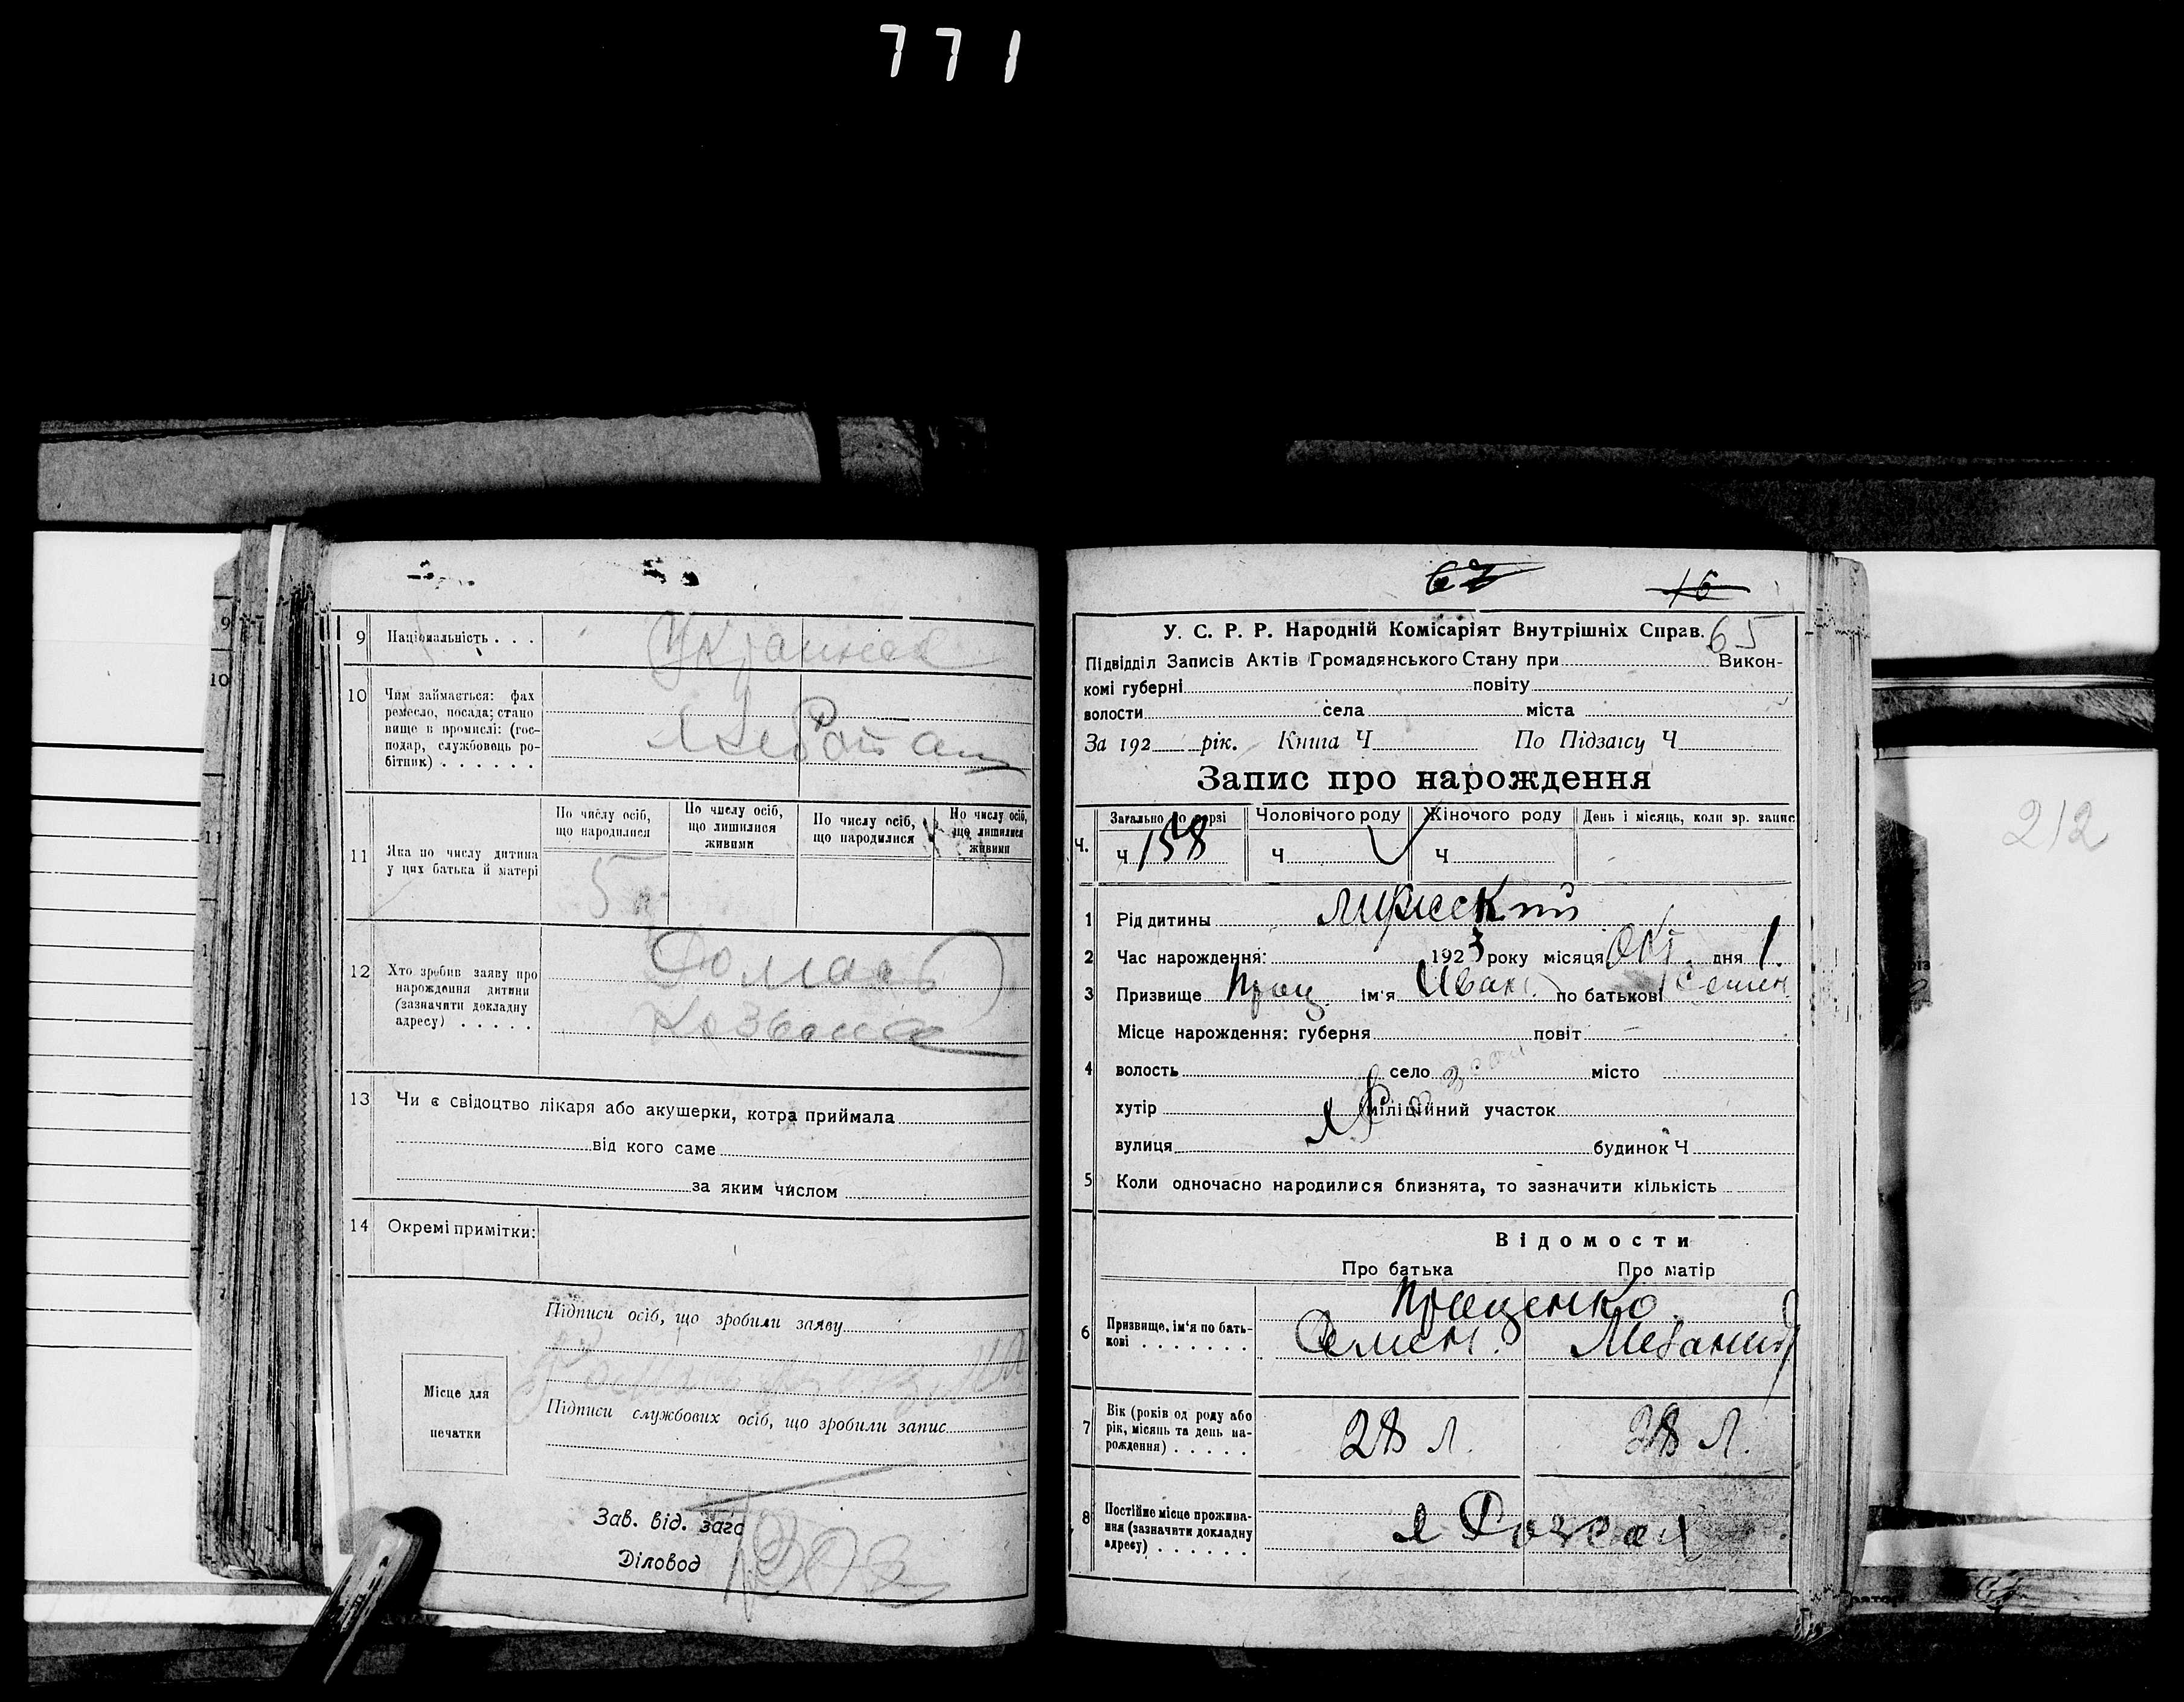 771
9 Національність . . .
Украинец
10 Чим займається: фах
ремесло, посада; стано
вище в промислі: (гос-
подар, службовець ро-
бітник) . . . . . .
Хлебопаш
11 Яка по числу дитина
у цих батька й матері
По числу осіб,
що народилися
По числу осіб,
що лишилися
живими
По числу осіб,
що народилися
По числу осіб,
що лишилися
живими
5
12 Хто зробив заяву про
нарождення дитини
(зазначити докладну
адресу) . . . . .
13 Чи є свідоцтво лікаря або акушерки, котра приймала
від кого саме
за яким числом
14 Окремі примітки:
Підписи осіб, що зробили заяву
Місце для
печатки
Підписи службових осіб, що зробили запис
Зав. від. загс
Діловод
67 16
У. С. Р. Р. Народній Комісаріят Внутрішніх Справ. 65
Підвідділ Записів Актів Громадянського Стану при Викон-
комі губерні повіту
волости села міста
За 192 рік. Книга Ч По Підзаісу Ч
Запис про нарождення
Ч. Загально по версі Чоловічого роду Жіночого роду День і місяць, коли зр. запис
Ч 158 Ч Ч
1 Рід дитины мужеский
2 Час нарождення: 1923 року місяця Окт. дня 1.
3 Призвище Прац. ім'я Иван. по батькові Семен.
Місце нарождення: губерня повіт
4 волость село місто
хутір міліційний участок
вулиця будинок Ч
5 Коли одночасно народилися близнята, то зазначити кількість
Відомости
Про батька Про матір
6 Призвище, ім'я по бать-
кові . . . . . . .
Праценко.
Семен. Мелания
7 Вік (років од роду або
рік, місяць та день на-
рождення) . . . . .
28 л. 28 л.
8 Постійне місце прожива-
ння (зазначити докладну
адресу) . . . . . .
212